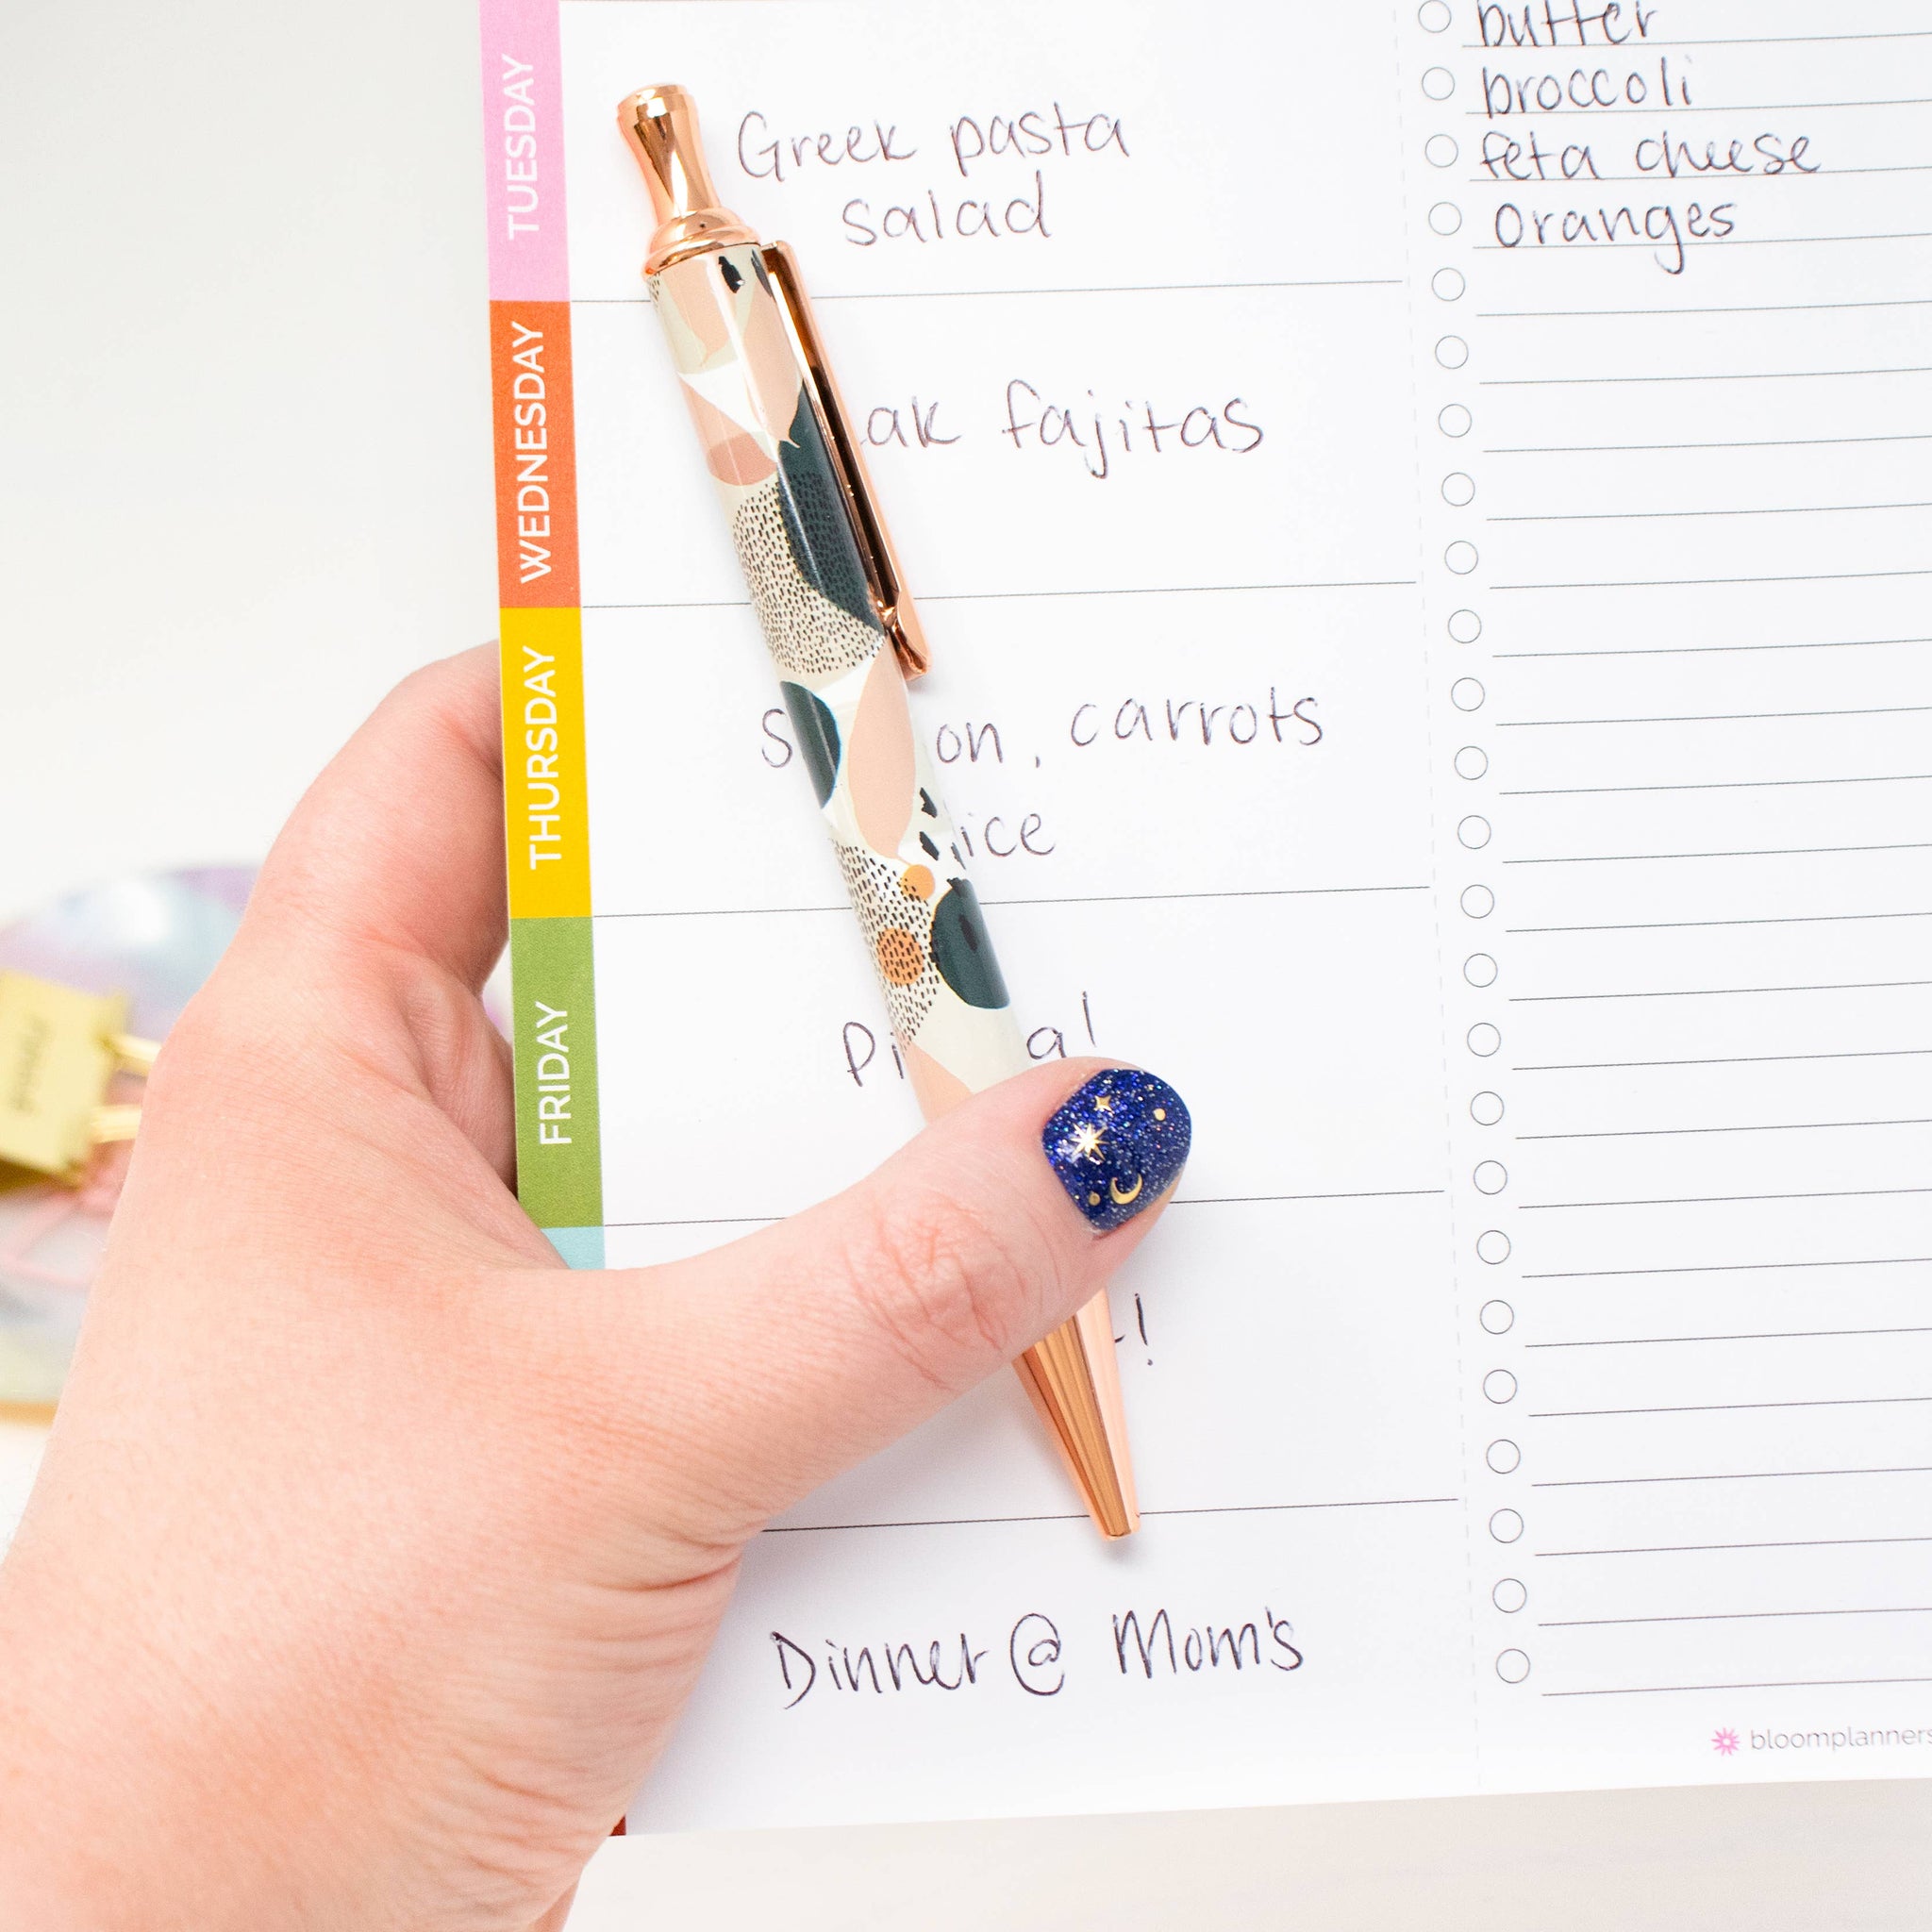 TUESDAY
Greek pasta
salad
WEDNESDAY
fajitas
THURSDAY
, carrots
FRIDAY
Dinner @ Mom's
butter
broccoli
feta cheese
oranges
bloomplanners